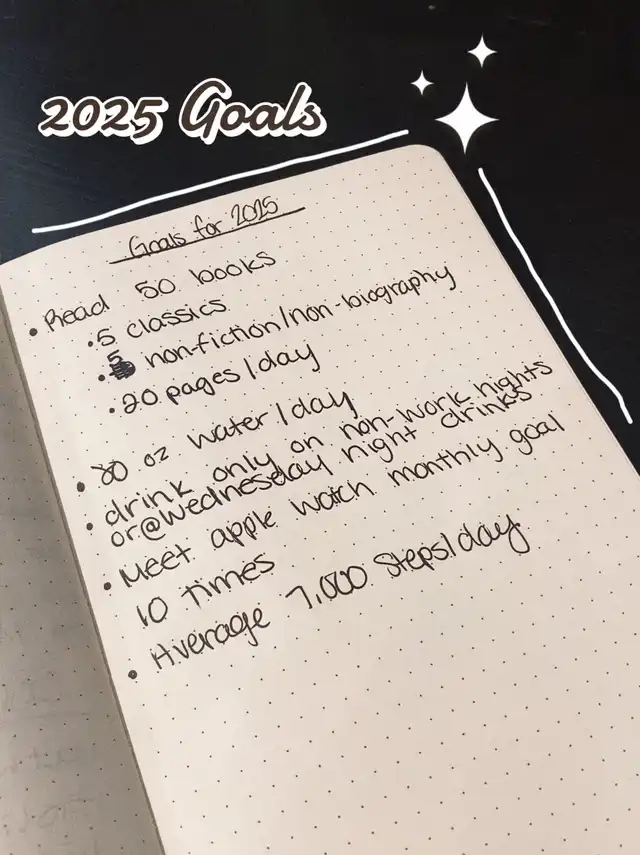 2025 Goals
Goals for 2025
• Read 50 books
• 5 classics
• 5 non-fiction/non-biography
• 20 pages/day
• 80 oz water/day
• drink only on non-work nights
or@Wednesday night drinks
• Meet apple watch monthly goal
10 times
• Average 7,000 steps/day